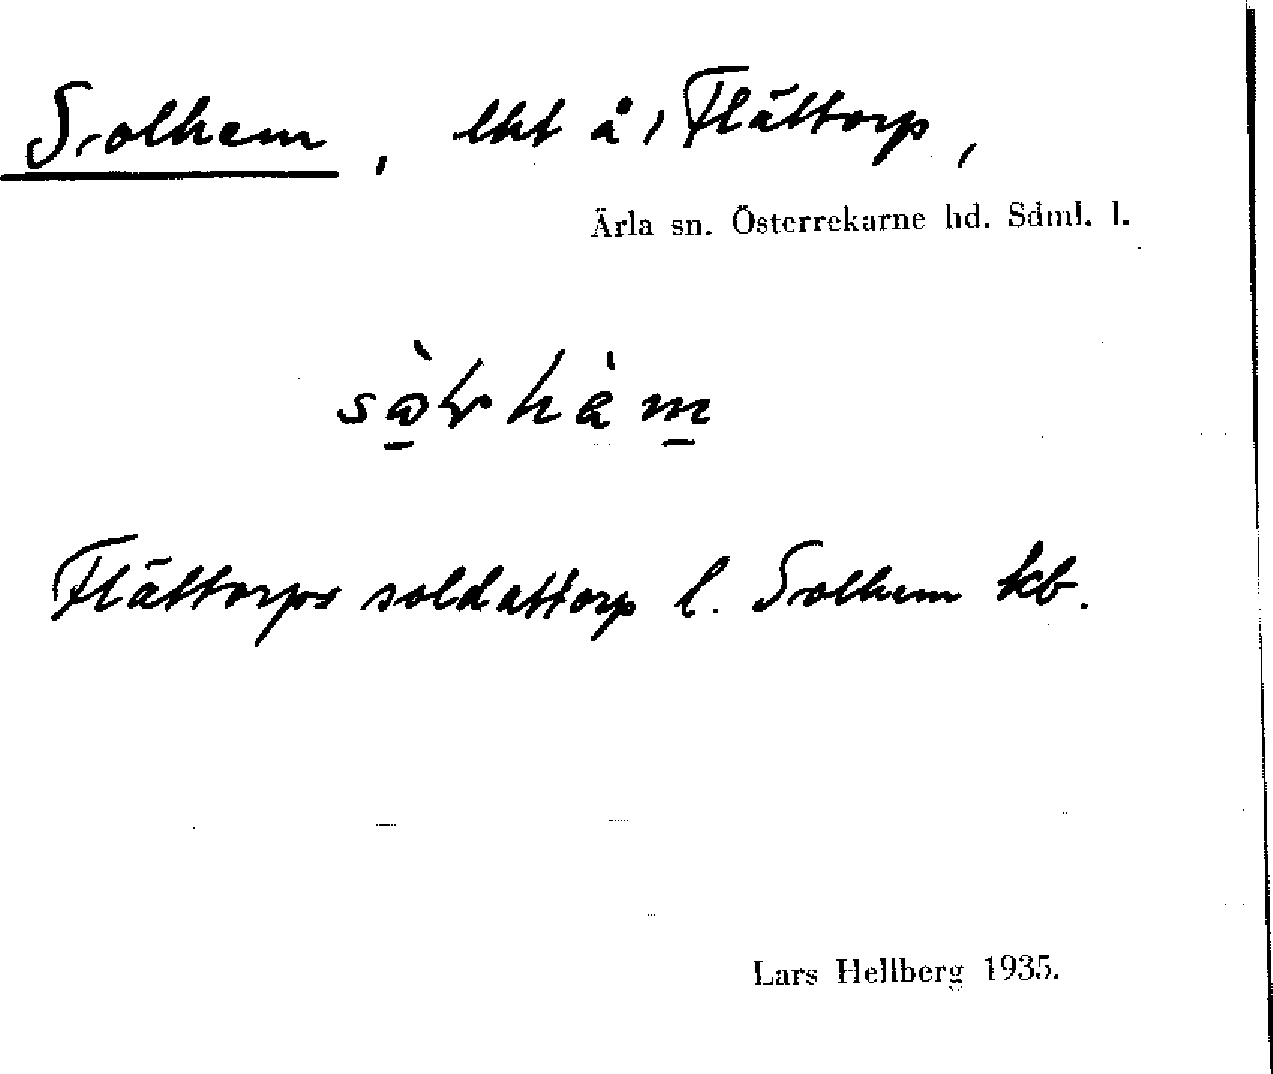 Solhem, lht å, Flättorp,
Ärla sn. Österrekarne hd. Söml. l.
Flättorps soldattorp l. Solhem kb.
Lars Hellberg 1935.